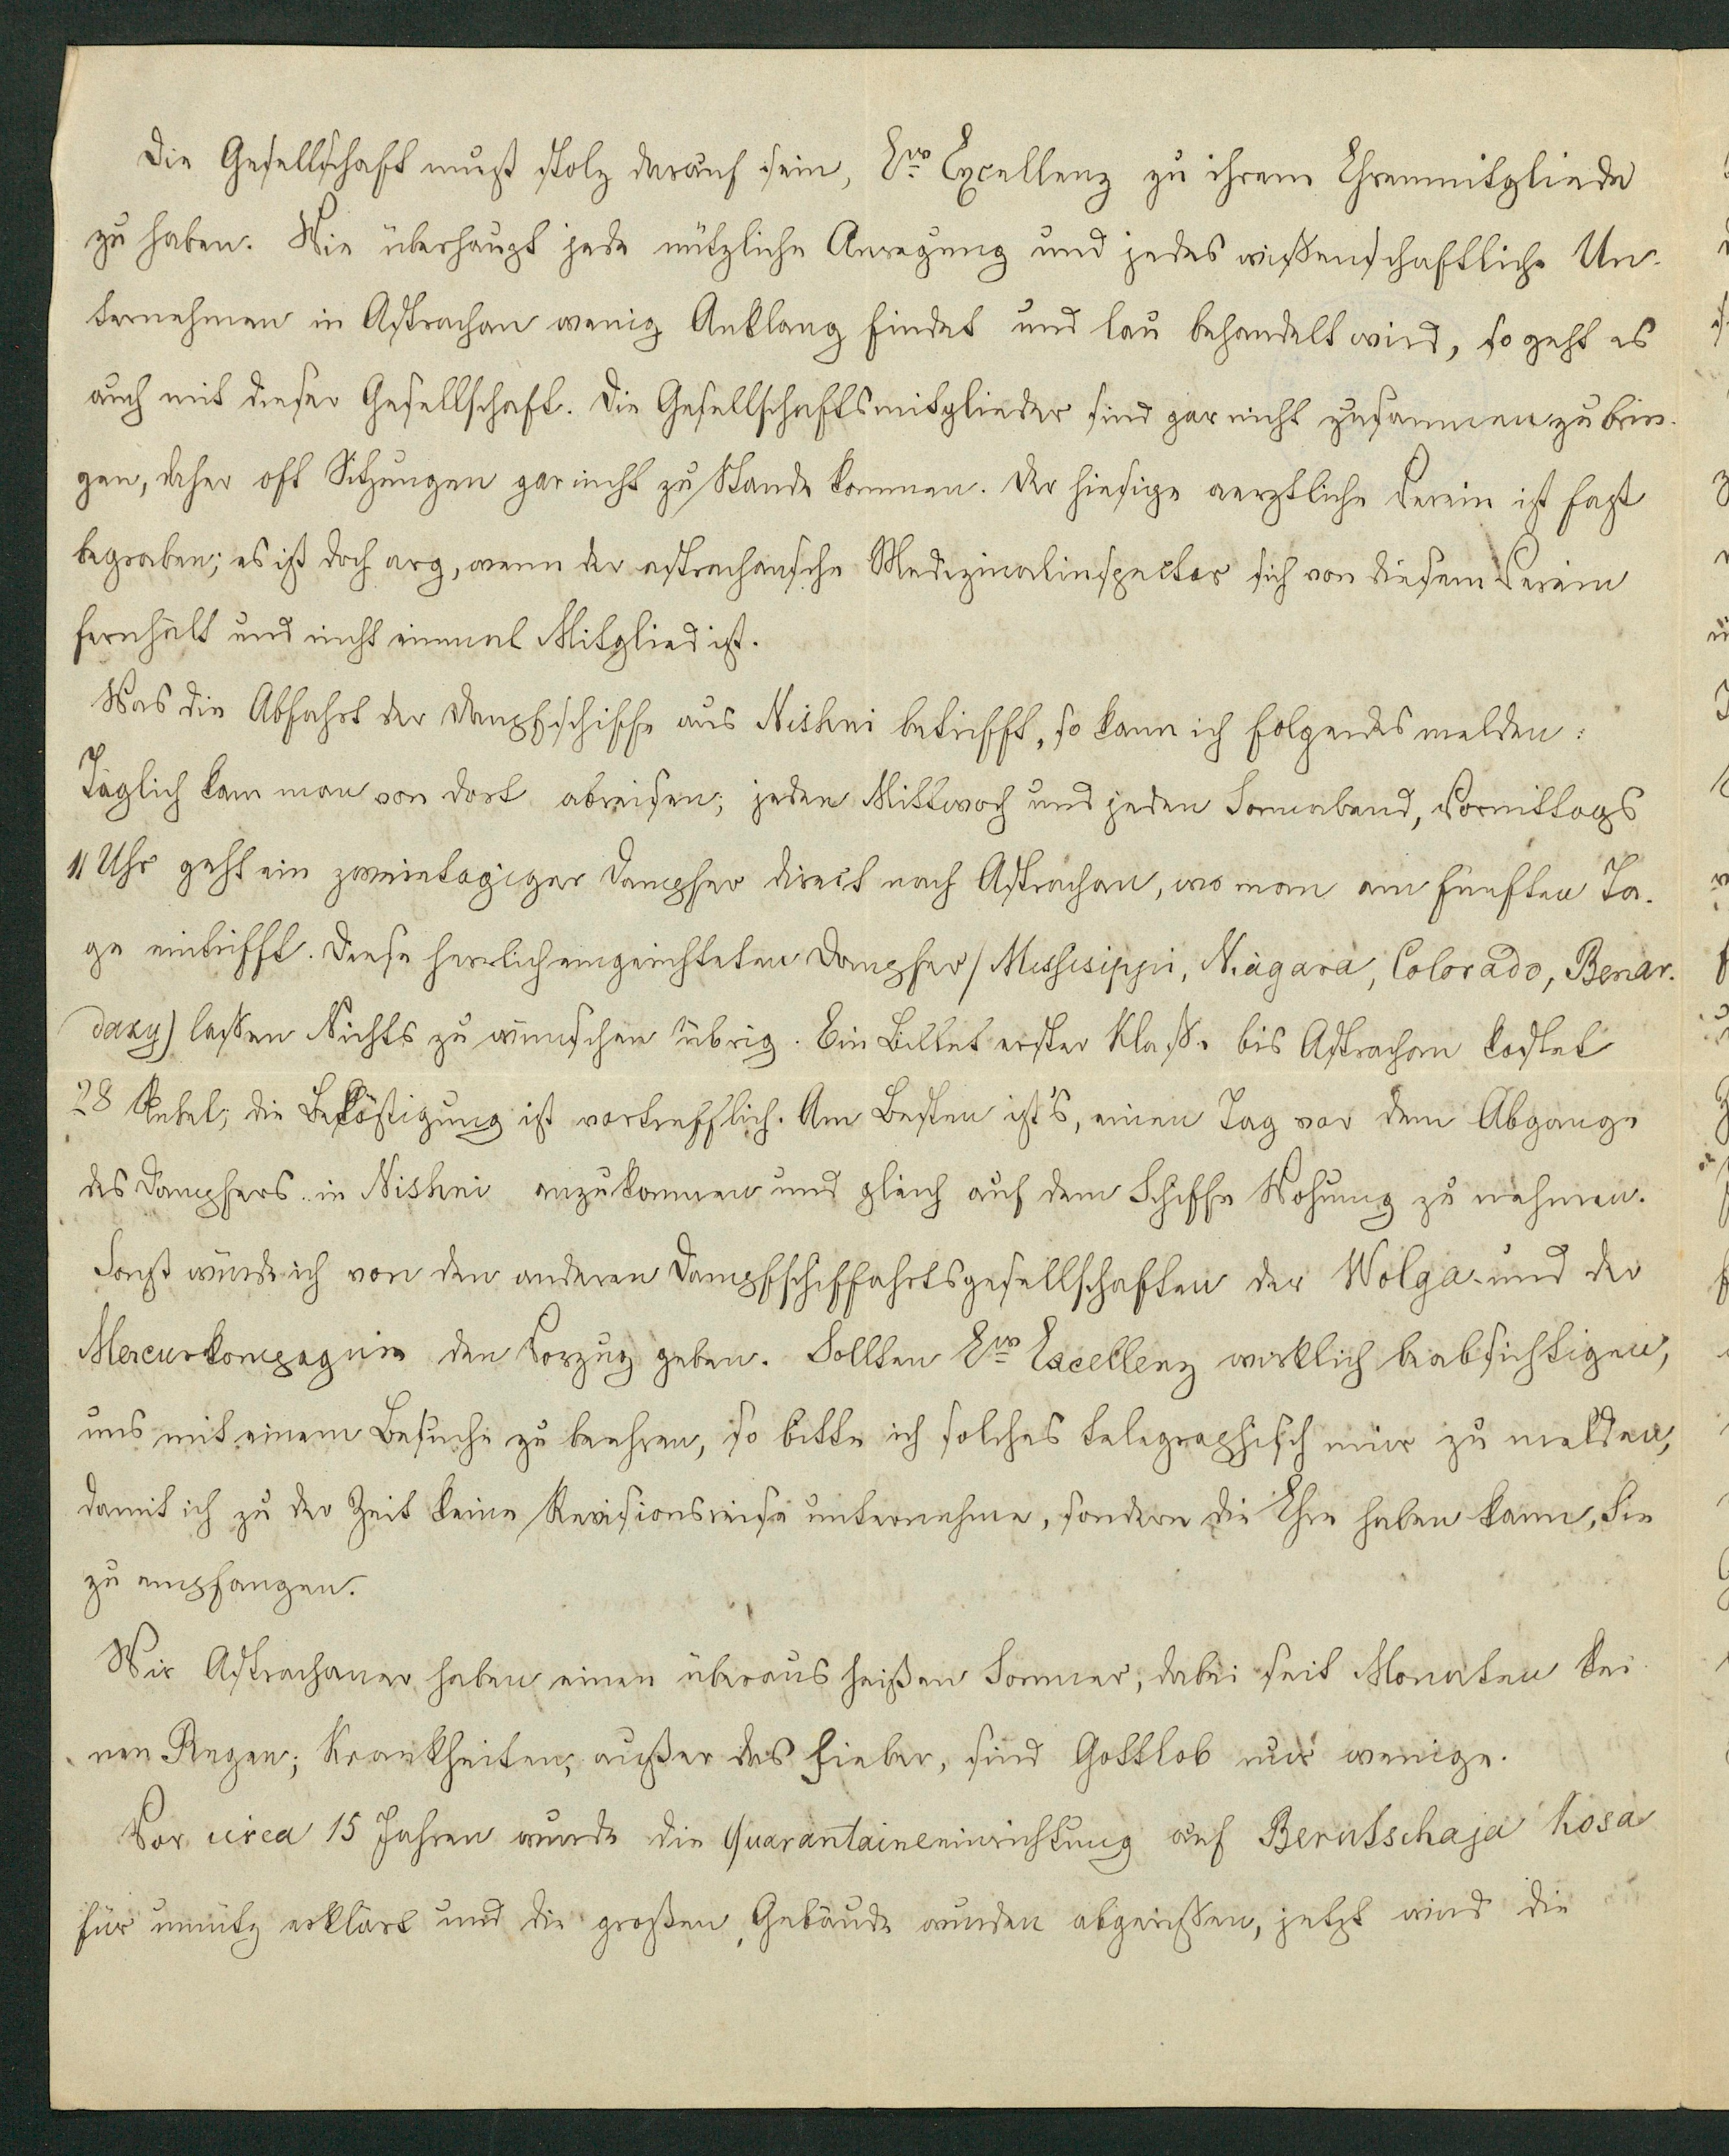 Die Gesellschaft muß stolz darauf sein, Ew Excellenz zu ihrem Ehrenmitgliede
zu haben. Wie überhaupt jede nützliche Anregung und jedes wißenschaftliche Un-
ternehmen in Astrachan wenig Anklang findet und lau behandelt wird, so geht es
auch mit dieser Gesellschaft. Die Gesellschaftsmitglieder sind gar nicht zusammen zu brin-
gen, daher oft Sitzungen gar nicht zu Stande kommen. Der hiesige aerztliche Verein ist fast
begraben; es ist doch arg, wenn der astrachansche Medizinalinspector sich von diesem Verein
fernhält und nicht einmal Mitglied ist.
Was die Abfahrt der Dampfschiffe aus Nishni betrifft, so kann ich folgendes melden:
Täglich kann man von dort abreisen; jeden Mittwoch und jeden Sonnabend, Vormittags
11 Uhr geht ein zweietagiger Dampfer direct nach Astrachan, wo man am fünften Ta-
ge eintrifft. Diese herrlich eingerichteten Dampfer (Missisippi, Niagara, Colorado, Benar-
daky) laßen Nichts zu wünschen übrig. Ein Billet erster Klaße bis Astrachan kostet
28 Rubel; die Beköstigung ist vortrefflich. Am Besten ist's, einen Tag vor dem Abgange
des Dampfers in Nishni anzukommen und gleich auf dem Schiffe Wohung zu nehmen.
Sonst würde ich von den anderen Dampfschiffahrtsgesellschaften der Wolga- und der
Mercurkompagnie den Vorzug geben. Sollten Ew Excellenz wirklich beabsichtigen,
uns mit einem Besuche zu beehren, so bitte ich solches telegraphisch mir zu melden,
damit ich zu der Zeit keine Revisionsreise unternehme, sondern die Ehre haben kann, Sie
zu empfangen.
Wir Astrachaner haben einen überaus heißen Sommer, dabei seit Monaten kei
nen Regen; Krankheiten, außer das Fieber, sind Gottlob nur wenige.
Vor circa 15 Jahren wurde die Quarantaineeinrichtung auf Berutschaja Kosa
für unnütz erklärt und die großen Gebäude wurden abgerißen, jetzt wird die